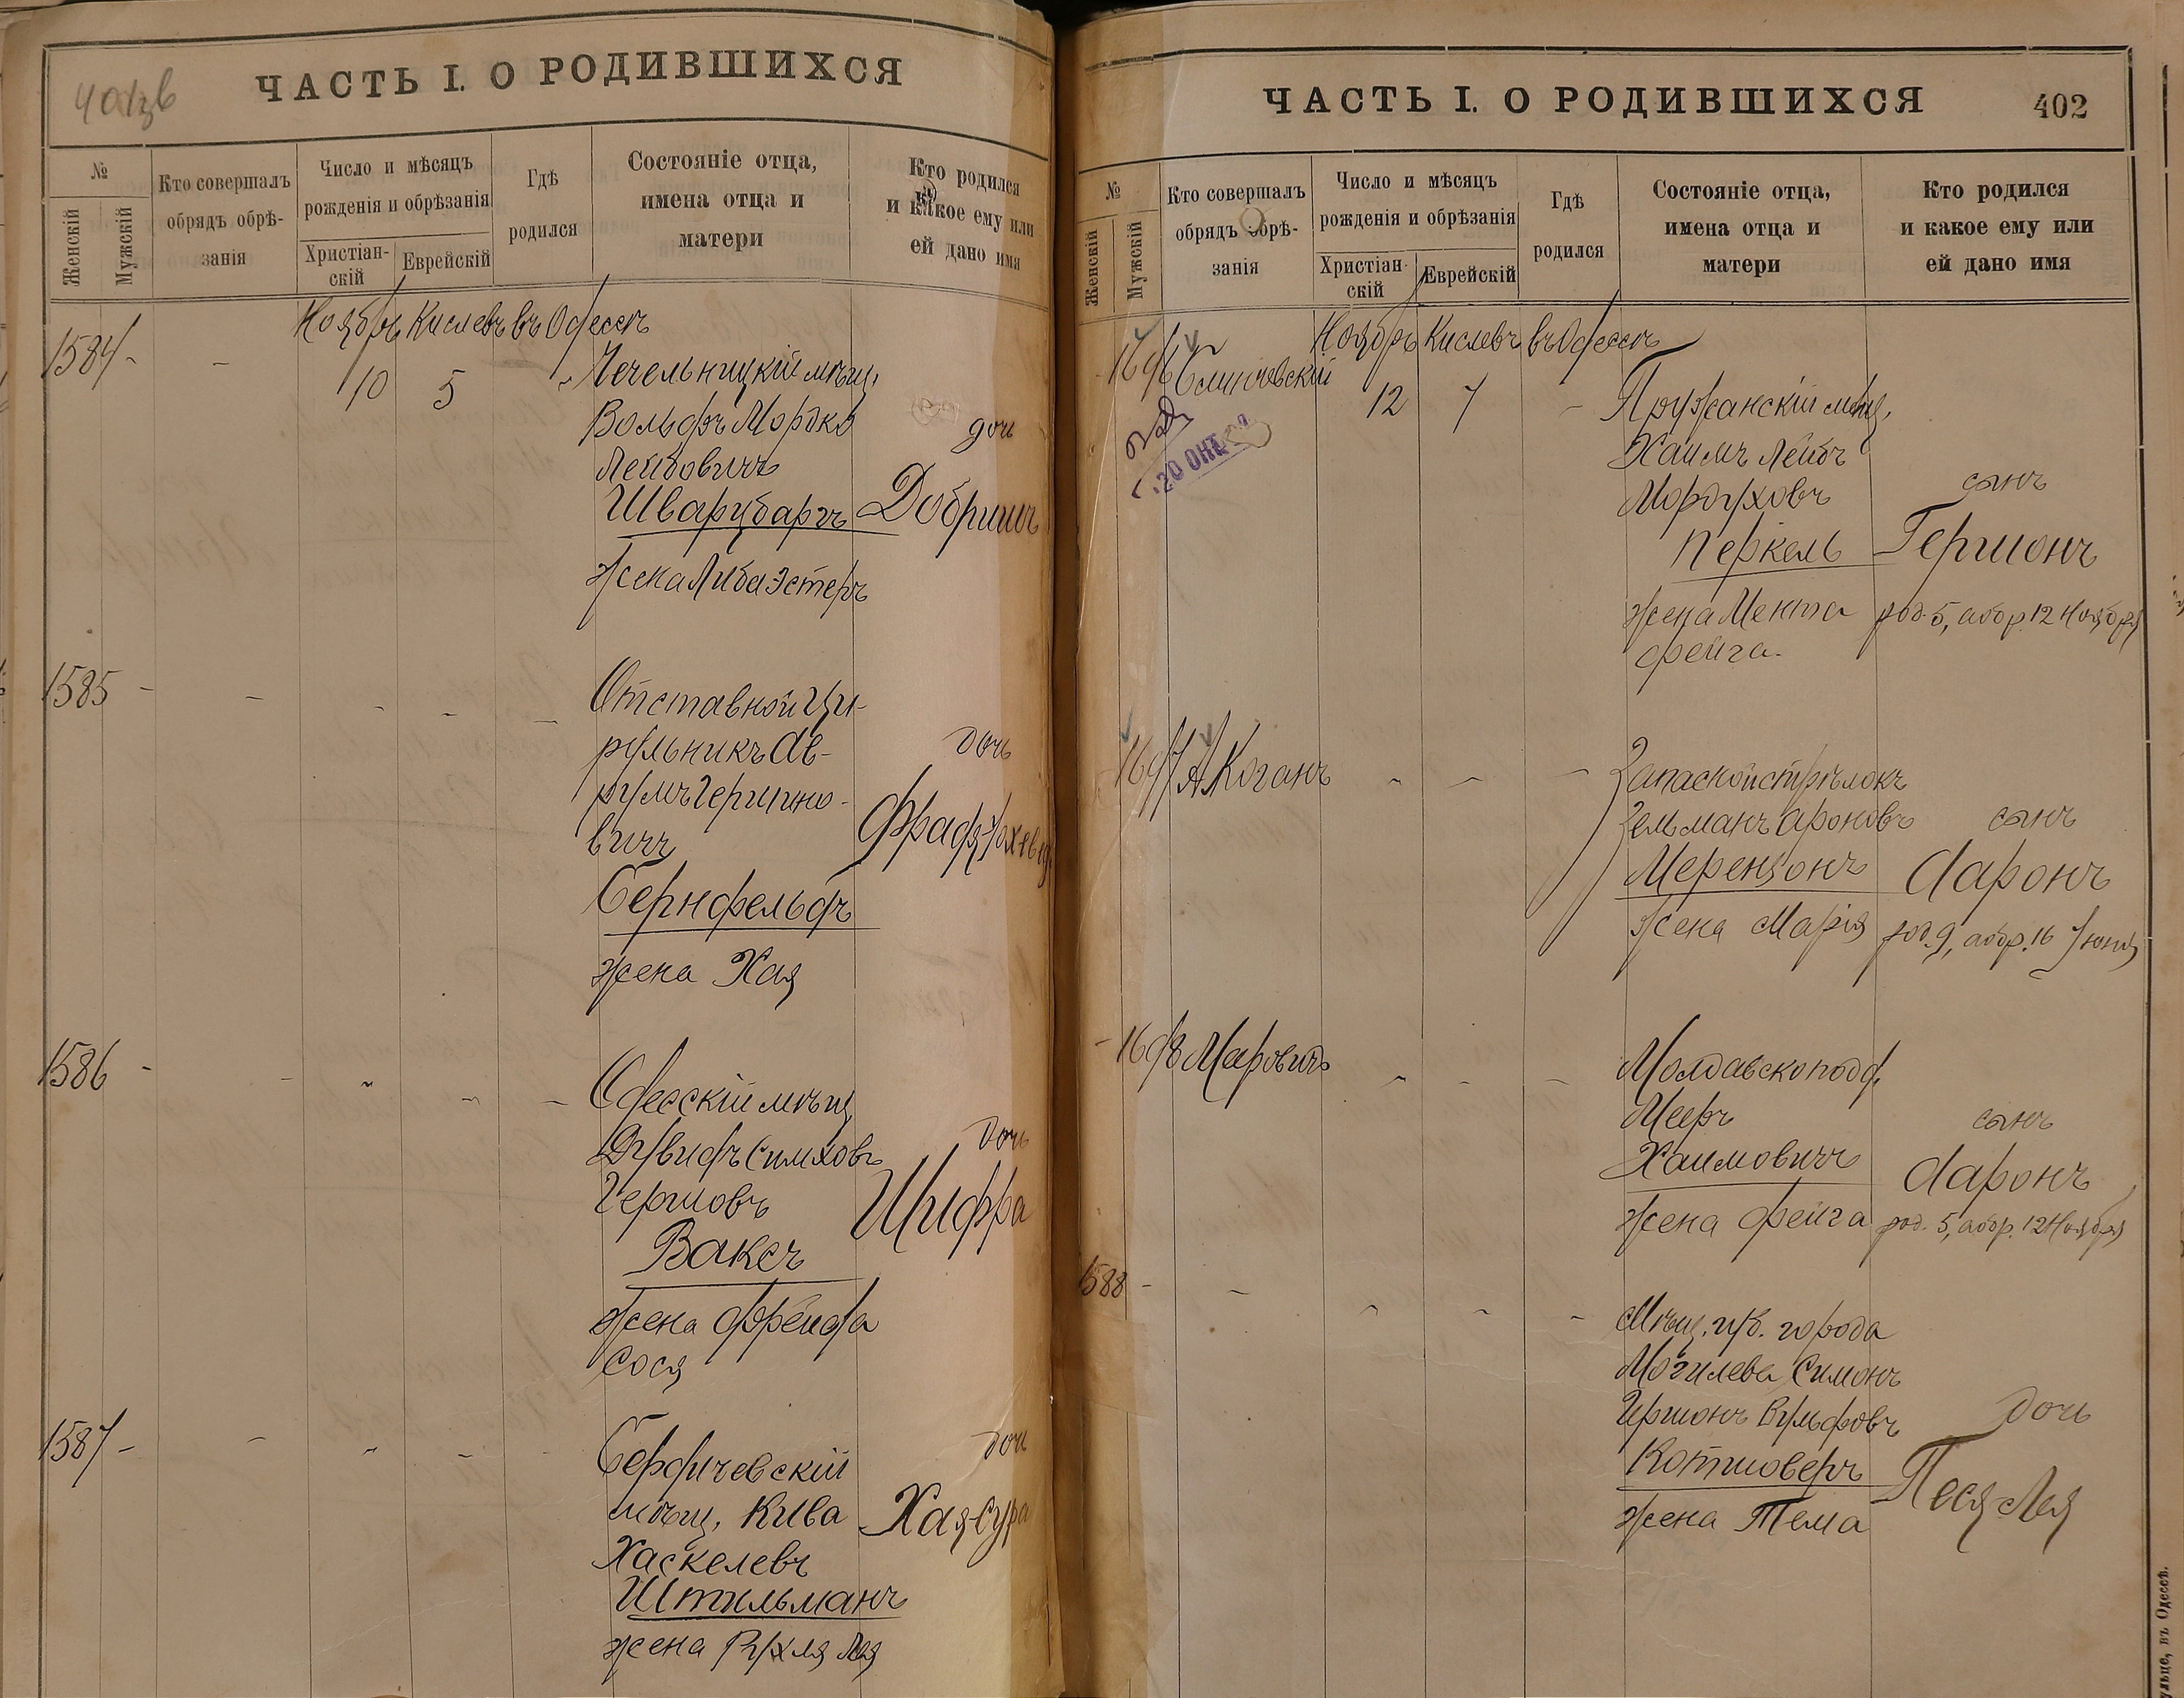 ЧАСТЬ I. О РОДИВШИХСЯ
№
Женскій
Мужскій
Кто совершалъ
обрядъ обрѣ-
занія
Число и мѣсяцъ
рожденія и обрѣзанія
Христіан-
скій
Еврейскій
Гдѣ
родился
Состояніе отца,
имена отца и
матери
Кто родился
и какое ему или
ей дано имя
Ноябрь Кислевъ въ Одессѣ
1584 -
-
10
5
Чечельницкій мѣщ.
Вольфъ Мордко
Лейбовичъ
Шварцбаргъ
жена Либа Эстеръ
дочь
Добришъ
1585 -
Отставной Ци-
рульникъ Ав-
румъ Гершно-
вичъ
Бернфельдъ
жена Хая
дочь
1586 -
Одесскій мѣщ
Дувидъ Симховъ
Гершовъ
Ваксъ
жена Фрейда
Сося
дочь
Шифра
1587 -
Бердичевскій
мѣщ. Кива
Хаскелевъ
Штильманъ
жена Рухля Лея
дочь
Хая-Сура
ЧАСТЬ I. О РОДИВШИХСЯ
402
№
Женскій
Мужскій
Кто совершалъ
обрядъ обрѣ-
занія
Число и мѣсяцъ
рожденія и обрѣзанія
Христіан-
скій
Еврейскій
Гдѣ
родился
Состояніе отца,
имена отца и
матери
Кто родился
и какое ему или
ей дано имя
Ноябрь Кислевъ въ Одессѣ
1696
12
7
-
Пружанскій мѣщ.
Хаимъ Лейбъ
Мордуховъ
Перкель
жена Мента
Фейга.
сынъ
Гершонъ
род. 5, а обр. 12 Ноября
20 ОНТ
1697
А Коганъ
Запасной стрѣлокъ
Зельманъ Ароновъ
Меренцонъ
жена Марія
сынъ
Ааронъ
род. 9, а обр. 16 Іюня
1698
Маровичъ
Молдавскоподд.
Мееръ
Хаимовичъ
жена Фейга
сынъ
Ааронъ
род. 5, а обр. 12 Ноября
1588 -
Мѣщ. губ. города
Могилева Симонъ
Гершонъ Вульфовъ
Котшоверъ
жена Тема
дочь
Песя-Лея
въ Одессѣ.